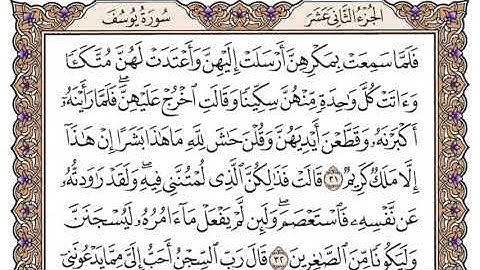 سُورَةُ يُوسُفَ
الجُزْءُ الثَّانِي عَشَرَ
فَلَمَّا سَمِعَتْ بِمَكْرِهِنَّ أَرْسَلَتْ إِلَيْهِنَّ وَأَعْتَدَتْ لَهُنَّ مُتَّكَـًٔا
وَءَاتَتْ كُلَّ وَٰحِدَةٍ مِّنْهُنَّ سِكِّينًا وَقَالَتِ ٱخْرُجْ عَلَيْهِنَّ ۖ فَلَمَّا رَأَيْنَهُۥٓ
أَكْبَرْنَهُۥ وَقَطَّعْنَ أَيْدِيَهُنَّ وَقُلْنَ حَٰشَ لِلَّهِ مَا هَٰذَا بَشَرًا إِنْ هَٰذَآ
إِلَّا مَلَكٌ كَرِيمٌ ٣١ قَالَتْ فَذَٰلِكُنَّ ٱلَّذِي لُمْتُنَّنِي فِيهِ ۖ وَلَقَدْ رَٰوَدتُّهُۥ
عَن نَّفْسِهِۦ فَٱسْتَعْصَمَ ۖ وَلَئِن لَّمْ يَفْعَلْ مَآ ءَامُرُهُۥ لَيُسْجَنَنَّ
وَلَيَكُونًا مِّنَ ٱلصَّٰغِرِينَ ٣٢ قَالَ رَبِّ ٱلسِّجْنُ أَحَبُّ إِلَيَّ مِمَّا يَدْعُونَنِيٓ